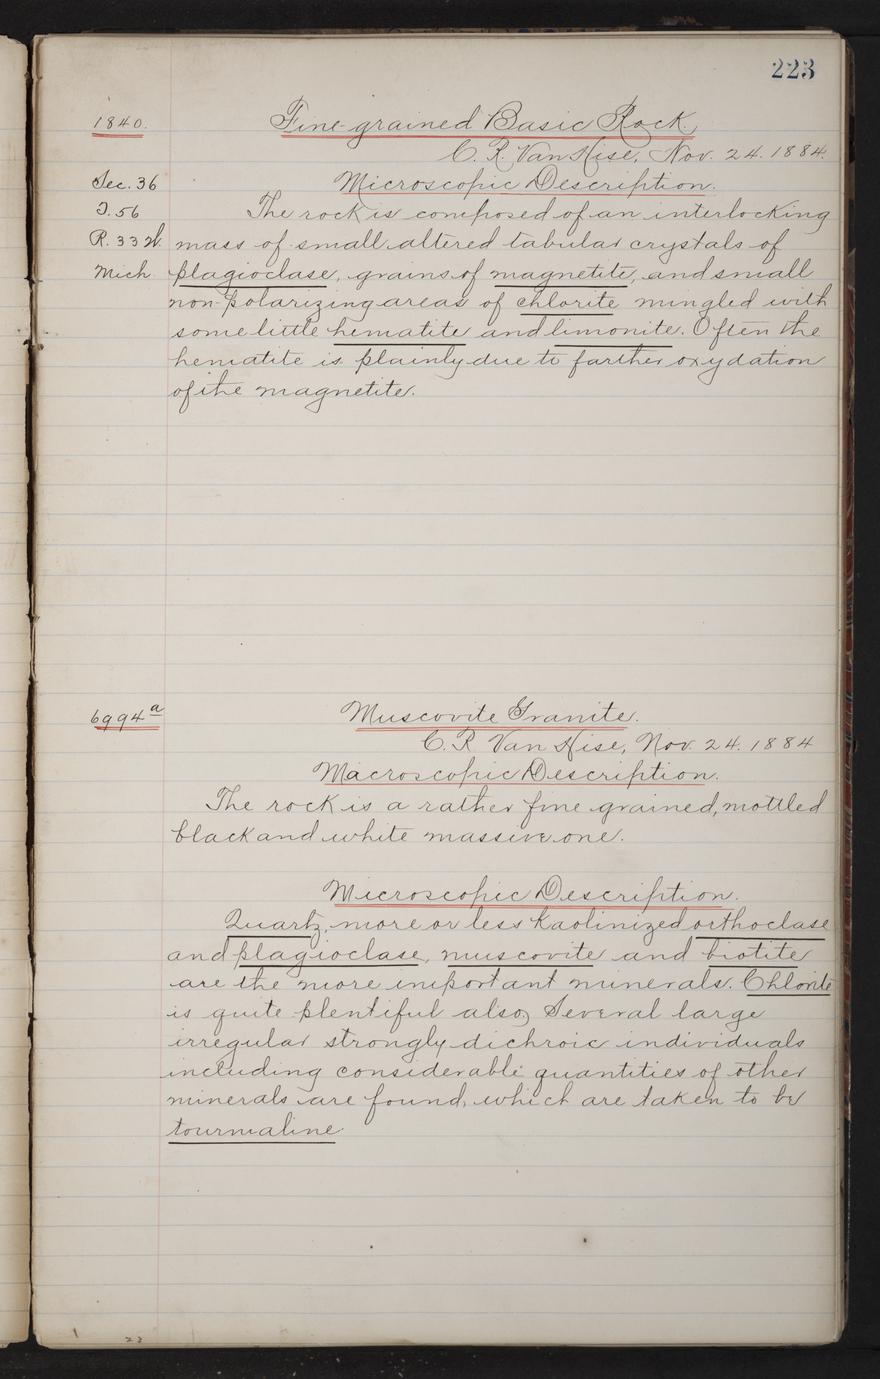 223
1840. Fine-grained Basic Rock.
C. R. Van Hise, Nov. 24. 1884.
Sec. 36 Microscopic Description.
T. 56 The rock is composed of an interlocking
R. 33 W. mass of small altered tabular crystals of
Mich. plagioclase, grains of magnetite, and small
non-polarizing areas of chlorite mingled with
some little hematite and limonite. Often the
hematite is plainly due to farther oxydation
of the magnetite.
6994a Muscovite Granite.
C. R. Van Hise, Nov. 24. 1884
Macroscopic Description.
The rock is a rather fine grained, mottled
black and white massive one.
Microscopic Description.
Quartz, more or less kaolinized orthoclase
and plagioclase, muscovite and biotite
are the more important minerals. Chlorite
is quite plentiful also, Several large
irregular strongly dichroic individuals
including considerable quantities of other
minerals are found, which are taken to be
tourmaline.